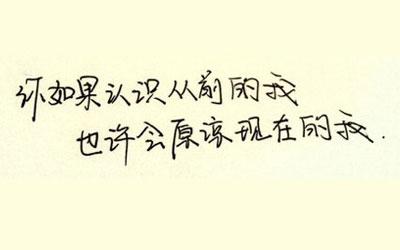 你如果认识从前的我
也许会原谅现在的我.